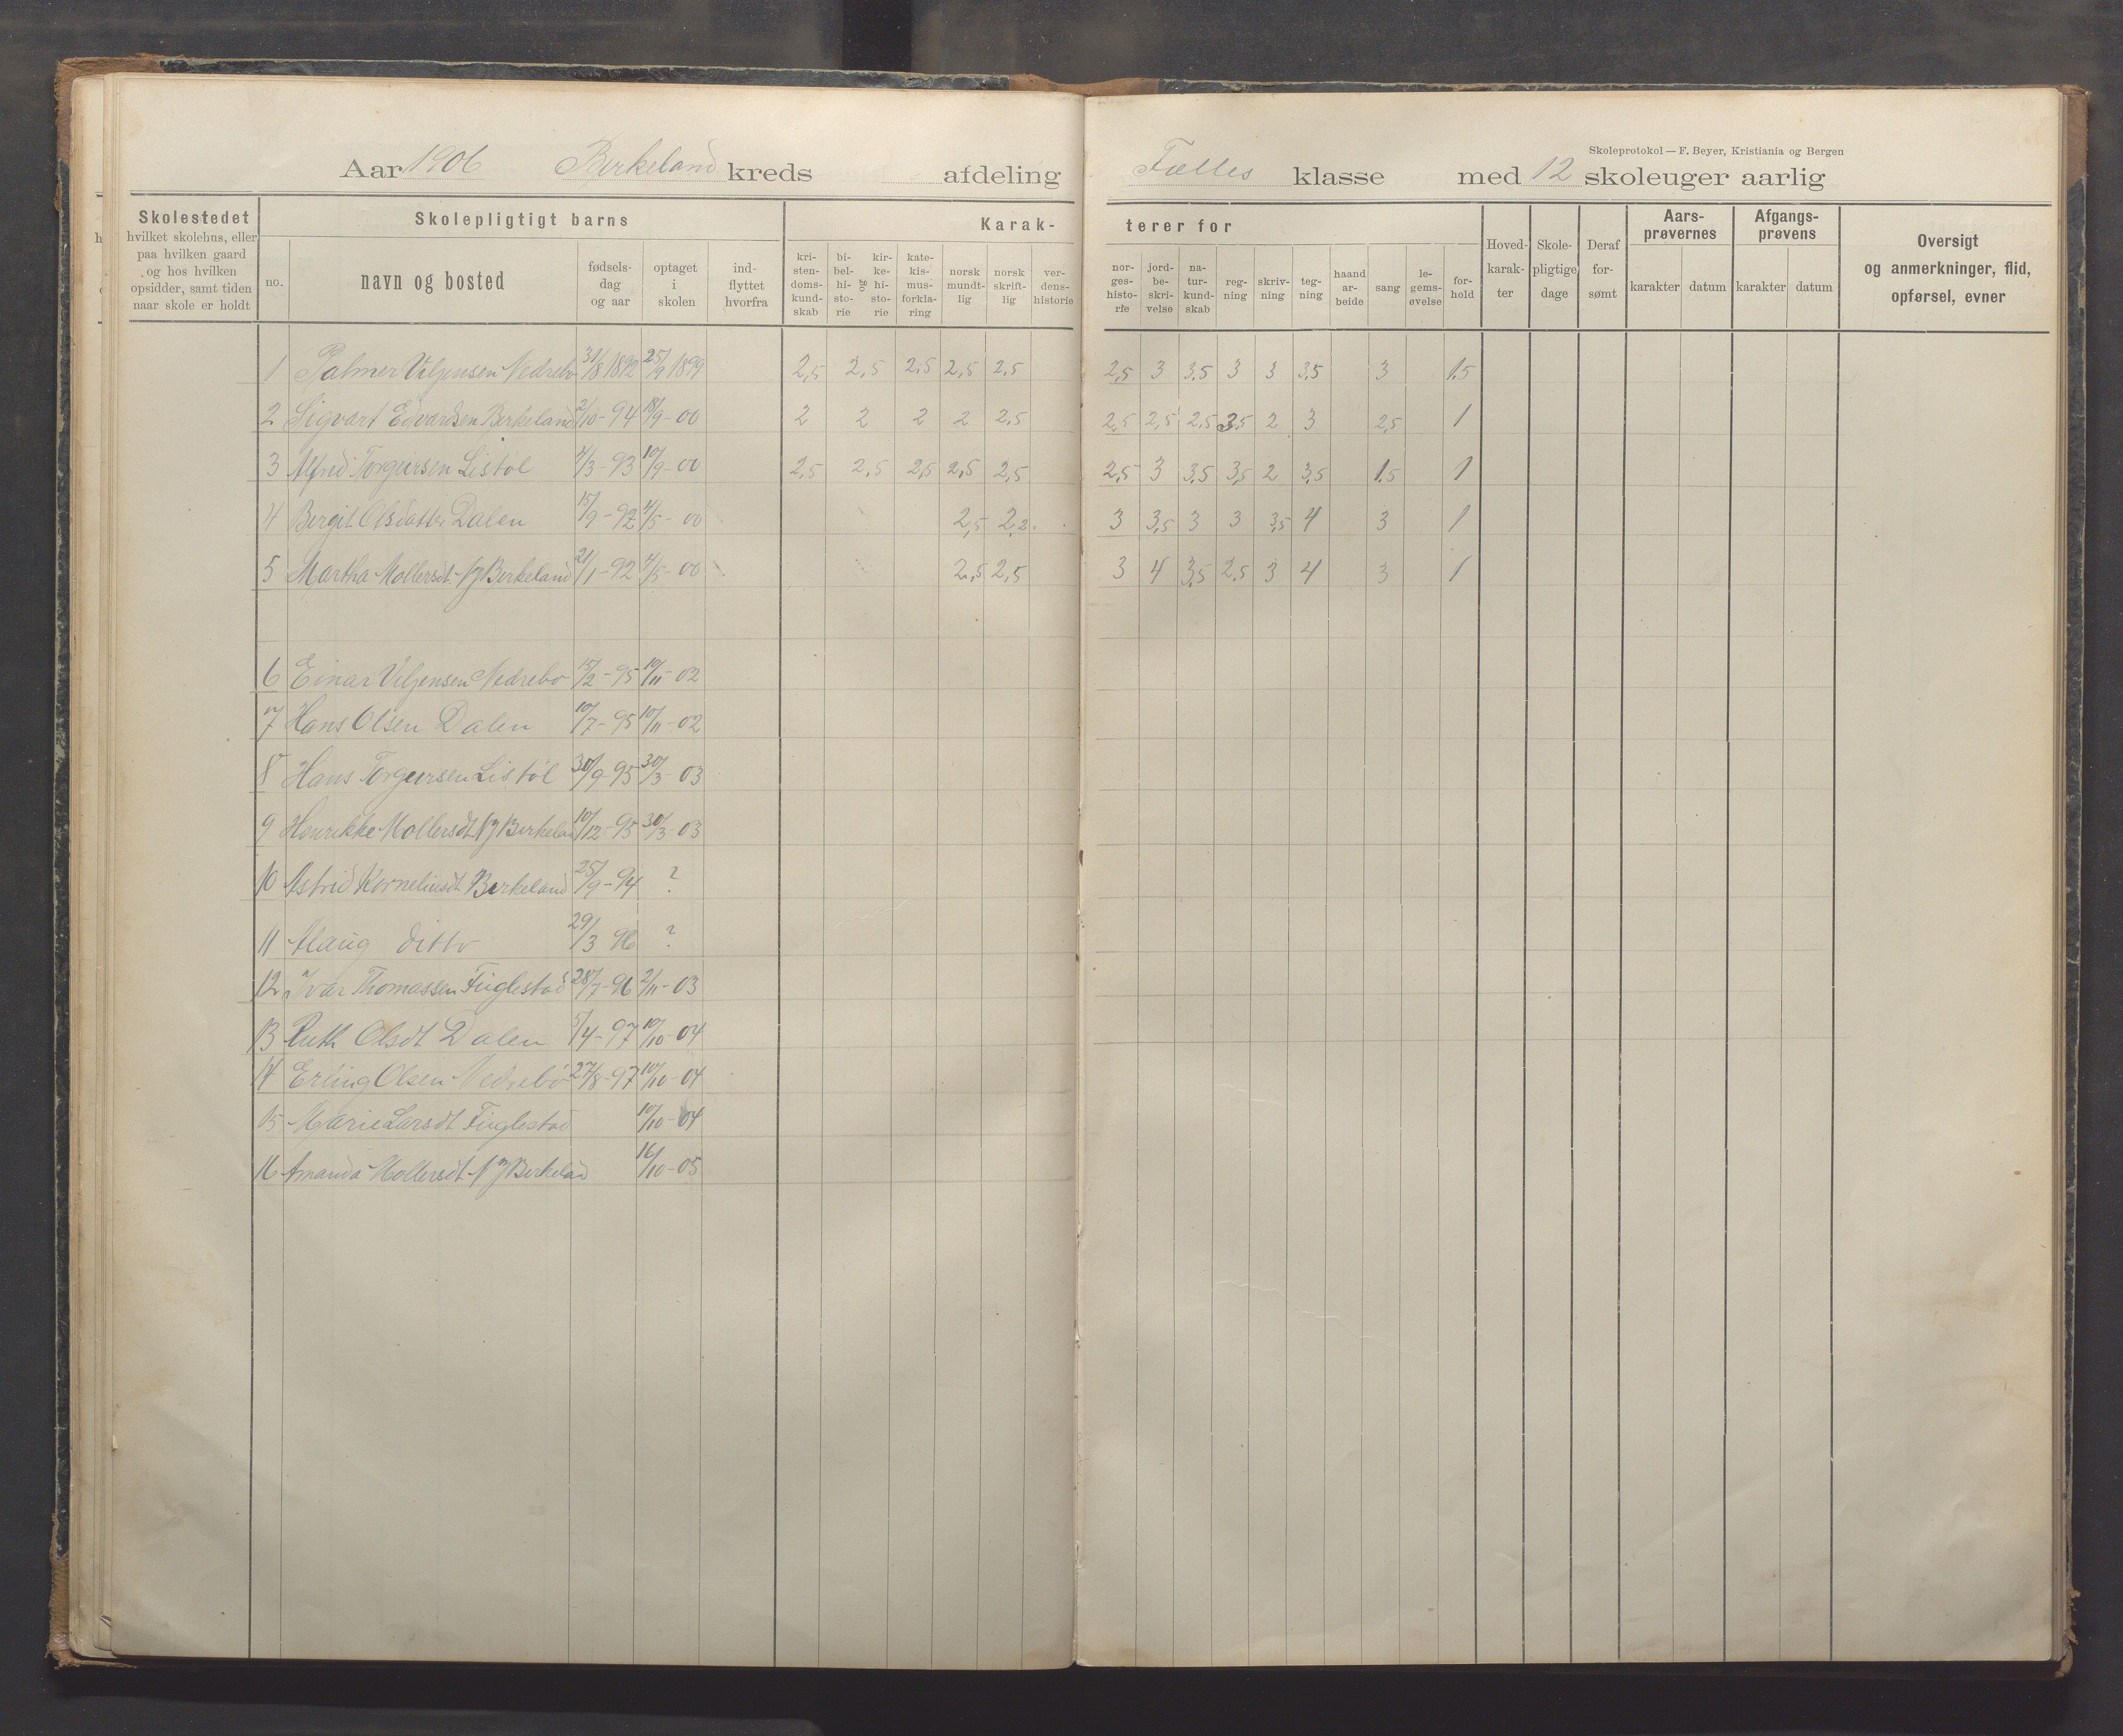 Skoleprotokol — F. Beyer, Kristiania og Bergen
Aar 1906 Birkeland kreds afdeling Fælles klasse med 12 skoleuger aarlig
Skolestedet hvilket skolehus, eller paa hvilken gaard og hos hvilken opsidder, samt tiden naar skole er holdt
Skolepligtigt barns
no. navn og bosted fødsels-dag og aar optaget i skolen ind-flyttet hvorfra
Karak-terer for
kri-sten-doms-kund-skab bi-bel-hi-sto-rie og kir-ke-hi-sto-rie kate-kis-mus-forkla-ring norsk mundt-lig norsk skrift-lig ver-dens-historie nor-ges-histo-rie jord-be-skri-velse na-tur-kund-skab reg-ning skriv-ning teg-ning haand ar-beide sang le-gems-øvelse for-hold
Hoved-karak-ter Skole-pligtige dage Deraf for-sømt
Aars-prøvernes karakter datum
Afgangs-prøvens karakter datum
Oversigt og anmerkninger, flid, opførsel, evner
1 Palmer Viljensen Nedrebø 31/8 1892 25/9 1899 2,5 2,5 2,5 2,5 2,5 2,5 3 3,5 3 3 3,5 3 1,5
2 Sigvart Edvardsen Birkeland 2/10-94 18/9-00 2 2 2 2 2,5 2,5 2,5 2,5 3,5 2 3 2,5 1
3 Alfred Torgersen Listøl 4/3-93 10/9-00 2,5 2,5 2,5 2,5 2,5 2,5 3 3,5 3,5 2 3,5 1,5 1
4 Bergit Olsdatter Dalen 15/9-92 4/5-00 2,5 2,2 3 3,5 3 3 3,5 4 3 1
5 Martha Mollersdt. Birkeland 21/1-92 4/5-00 2,5 2,5 3 4 3,5 2,5 3 4 3 1
6 Einar Viljensen Nedrebø 15/2-95 10/11-02
7 Hans Olsen Dalen 10/7-95 10/11-02
8 Hans Torgersen Listøl 30/9-95 30/3-03
9 Henrikke Mollersdt Birkeland 10/12-95 30/3-03
10 Astrid Korneliusdt Birkeland 25/9-94 ?
11 Alaug ditto 29/3 96 ?
12 Ivar Thomassen Fuglestad 28/7-96 2/11-03
13 Ruth Olsdt Dalen 5/4-97 10/10-04
14 Erling Olsen Nedrebø 27/8-97 10/10-04
15 Marie Larsdt Fuglestad 10/10-04
16 Amanda Mollersdt Birkelad 16/10-05